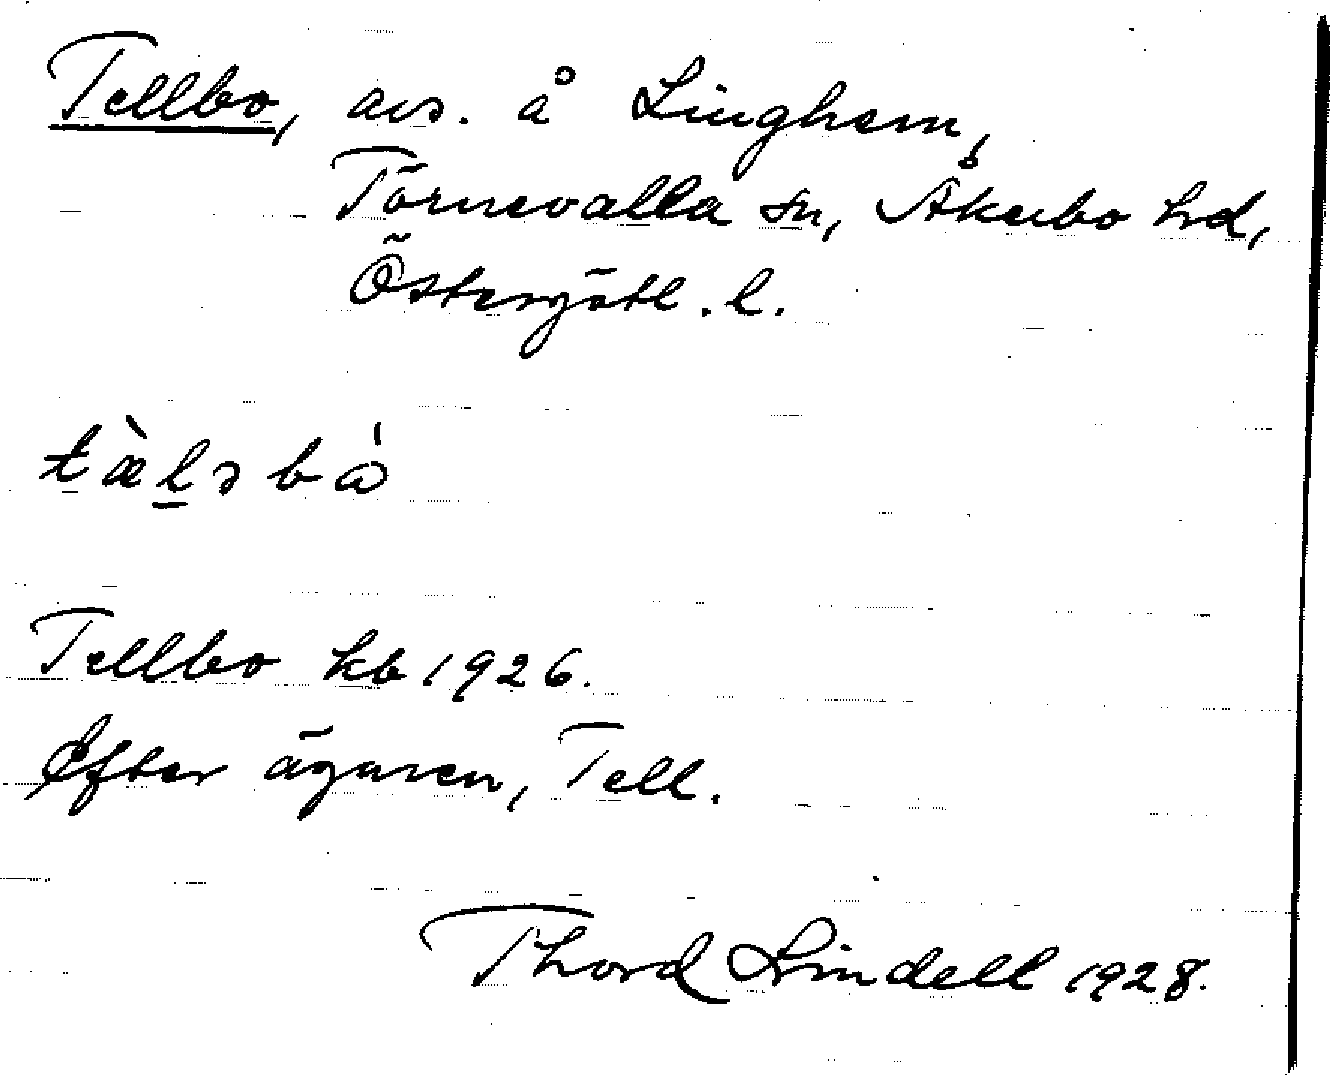 Tellbo, avs. å Linghem,
Törnevalla sn, Åkerbo hd,
Östergötl. l.
tæ̀lsbò
Tellbo kb 1926.
Efter ägaren, Tell.
Thord Lindell 1928.